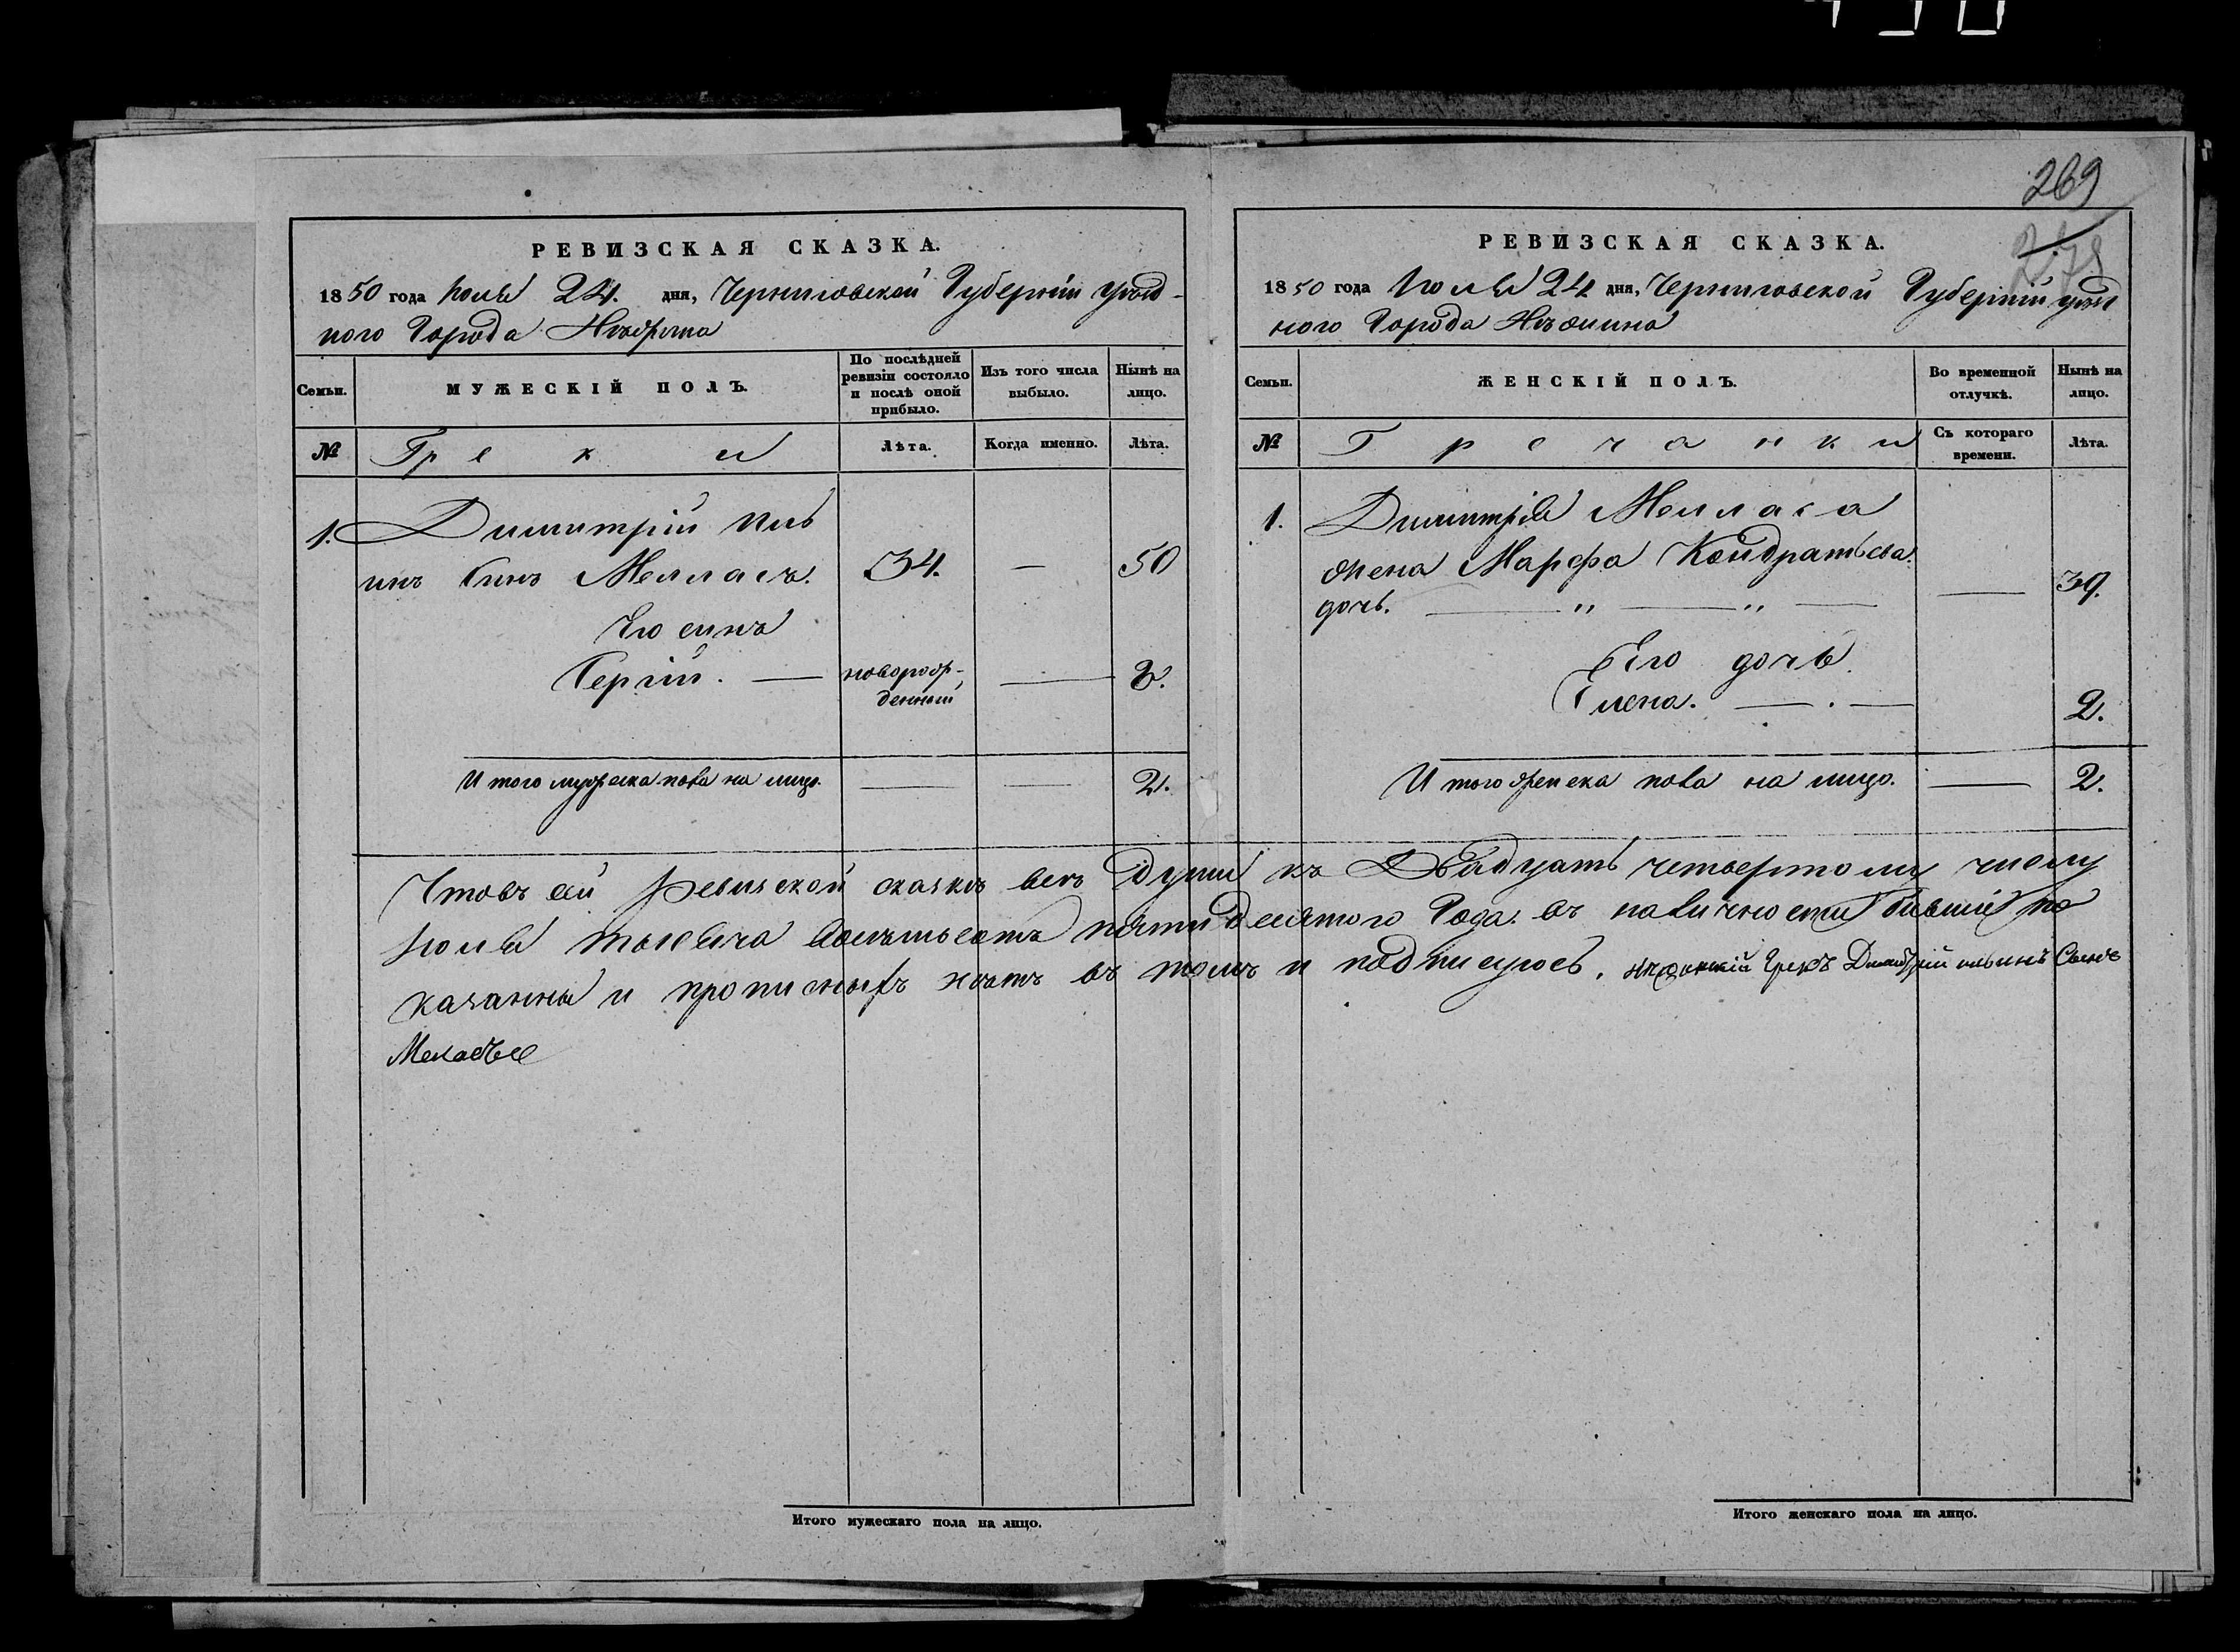 269
РЕВИЗСКАЯ СКАЗКА.
1850 года Июля 24. дня, Черниговской Губерніи уѣзд-
ного Города Нѣжина
Семьи.
МУЖЕСКІЙ ПОЛЪ.
По послѣдней ревизіи состояло и послѣ оной прибыло.
Изъ того числа выбыло.
Нынѣ на лицо.
№
Греки
Лѣта.
Когда именно.
Лѣта.
1. Димитрій Иль
инъ Синъ Мелласъ. 34. — 50
Его синъ
Сергій. — новорож-
денный — 3.
И того мужеска пола на лицо. — — 2.
РЕВИЗСКАЯ СКАЗКА.
1850 года Июля 24 дня, Черниговской Губерніи уѣзд
ного Города Нѣжина
Семьи.
ЖЕНСКІЙ ПОЛЪ.
Во временной отлучкѣ.
Нынѣ на лицо.
№
Гречанки
Съ котораго времени.
Лѣта.
1. Димитрія Мелласа
жена Марфа Кондратьева
дочь. — " — " — — 39.
Его дочь
Елена. — . — 2.
И того женска пола на лицо. — 2.
Что въ сей Ревизской сказкѣ всѣ души къ Двадцать четвертому числу
Июля тысяча восемьсотъ пятидесятого Года въ наличности бывшіе по
казанны и прописныхъ нѣтъ въ томъ и подписуюсь. нѣжинскій Грекъ Димитрій ильинъ Сынъ
Итого мужескаго пола на лицо.
Итого женскаго пола на лицо.